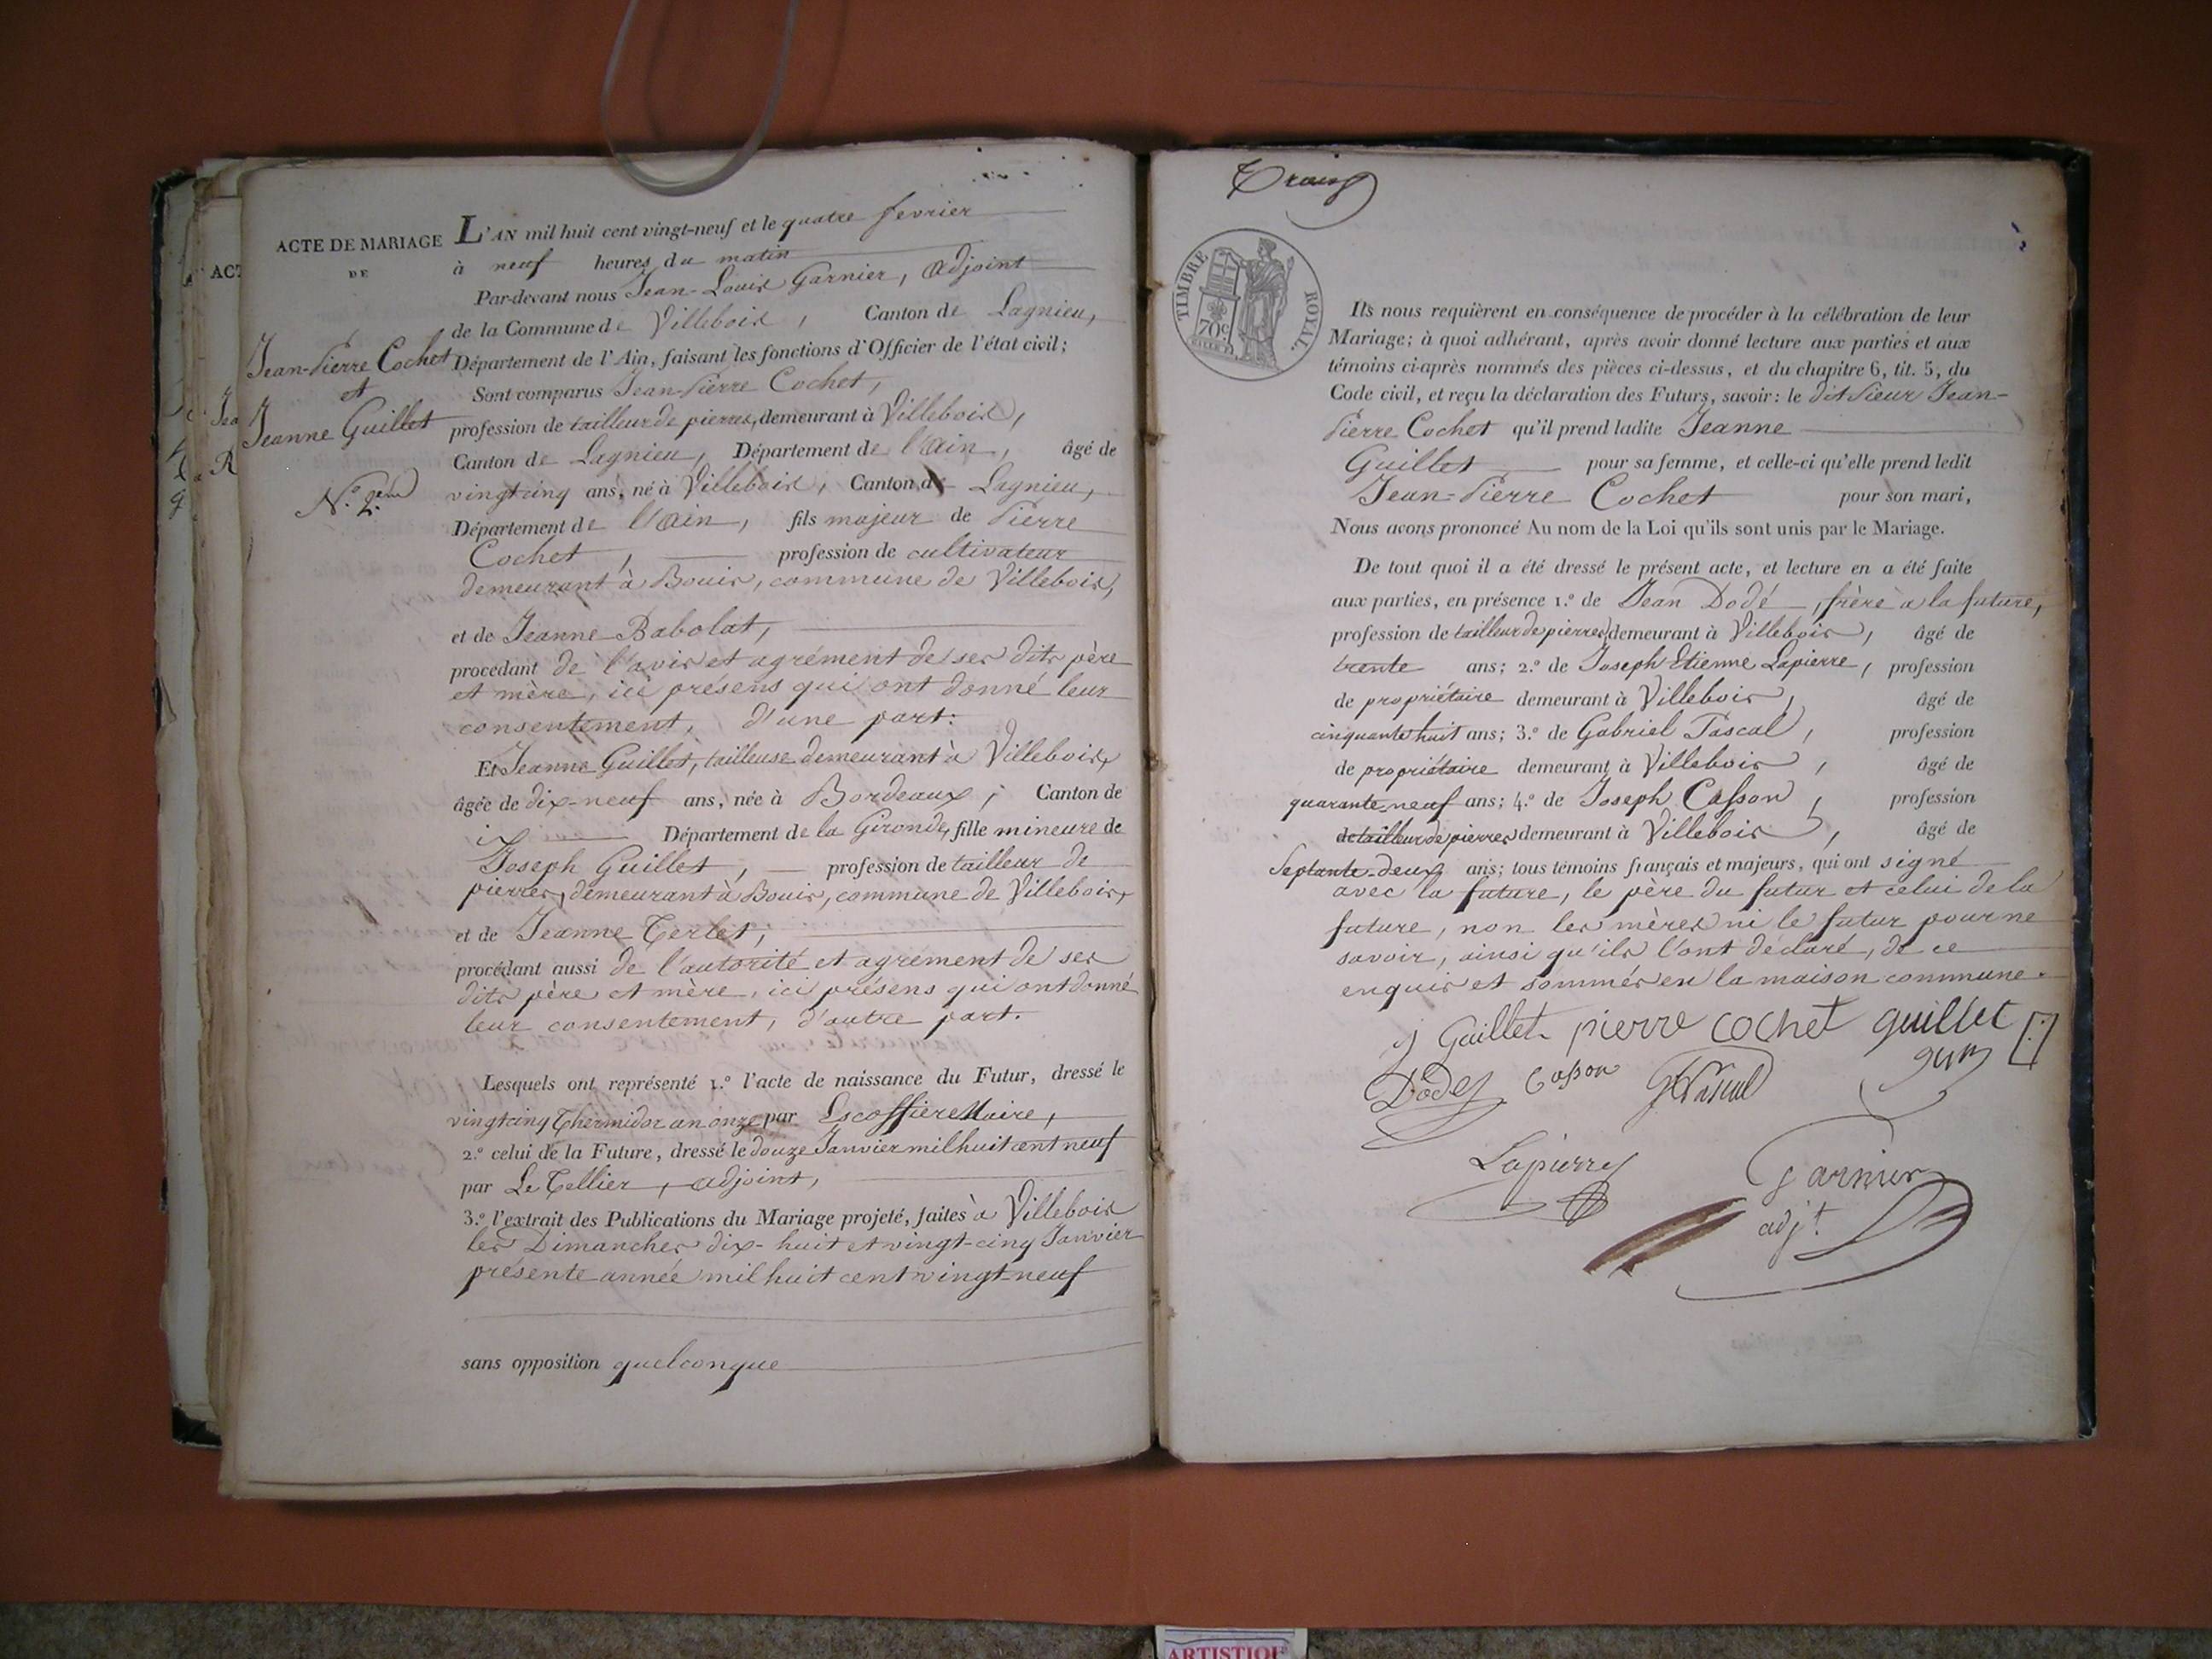 ACTE DE MARIAGE
DE
Jean-Pierre Cochet
et
Jeanne Guillet
N.º 2.em
L'AN mil huit cent vingt-neuf et le quatre fevrier
à neuf heures du matin
Par-devant nous Jean-Louis Garnier, Adjoint
de la Commune de Villebois, Canton de Lagnieu,
Département de l'Ain, faisant les fonctions d'Officier de l'état civil;
Sont comparus Jean-Pierre Cochet,
profession de tailleur de pierres, demeurant à Villebois,
Canton de Lagnieu, Département de l'Ain, âgé de
vingt cinq ans, né à Villebois, Canton de Lagnieu,
Département de l'Ain, fils majeur de Pierre
Cochet, profession de cultivateur
demeurant à Bouis, commune de Villebois,
et de Jeanne Babolat,
procédant de l'avis et agrément de ses dits père
et mère, ici présens qui ont donné leur
consentement, d'une part:
Et Jeanne Guillet, tailleuse demeurant à Villebois,
âgée de dix-neuf ans, née à Bordeaux, Canton de
Département de la Gironde, fille mineure de
Joseph Guillet, profession de tailleur de
pierres, demeurant à Bouis, commune de Villebois,
et de Jeanne Terlet;
procédant aussi de l'autorité et agrément de ses
dits père et mère, ici présens qui ont donné
leur consentement, d'autre part.
Lesquels ont représenté 1.º l'acte de naissance du Futur, dressé le
vingt cinq Thermidor an onze par Escoffier Maire,
2.º celui de la Future, dressé le douze Janvier mil huit cent neuf
par Le Tellier, adjoint,
3.º l'extrait des Publications du Mariage projeté, faites à Villebois
les Dimanches dix-huit et vingt-cinq Janvier
présente année mil huit cent vingt-neuf
sans opposition quelconque
ACT
TIMBRE ROYAL.
70c
Ils nous requièrent en conséquence de procéder à la célébration de leur
Mariage; à quoi adhérant, après avoir donné lecture aux parties et aux
témoins ci-après nommés des pièces ci-dessus, et du chapitre 6, tit. 5, du
Code civil, et reçu la déclaration des Futurs, savoir: le dit Sieur Jean-
Pierre Cochet qu'il prend ladite Jeanne
Guillet pour sa femme, et celle-ci qu'elle prend ledit
Jean-Pierre Cochet pour son mari,
Nous avons prononcé Au nom de la Loi qu'ils sont unis par le Mariage.
De tout quoi il a été dressé le présent acte, et lecture en a été faite
aux parties, en présence 1.º de Jean Dodé, frère a la future,
profession de tailleur de pierres, demeurant à Villebois, âgé de
trente ans; 2.º de Joseph Etienne Lapierre, profession
de propriétaire demeurant à Villebois, âgé de
cinquante huit ans; 3.º de Gabriel Pascal, profession
de propriétaire demeurant à Villebois, âgé de
quarante-neuf ans; 4.º de Joseph Casson, profession
de tailleur de pierres demeurant à Villebois, âgé de
Septante-deux ans; tous témoins français et majeurs, qui ont signé
avec la future, le père du futur et celui de la
future, non les mères ni le futur pour ne
savoir, ainsi qu'ils l'ont déclaré, de ce
enquis et sommés en la maison commune.
j Guillet pierre cochet guillet
Dodez Casson GPascal
Lapierre
Garnier
adj.t
ARTISTIQUE